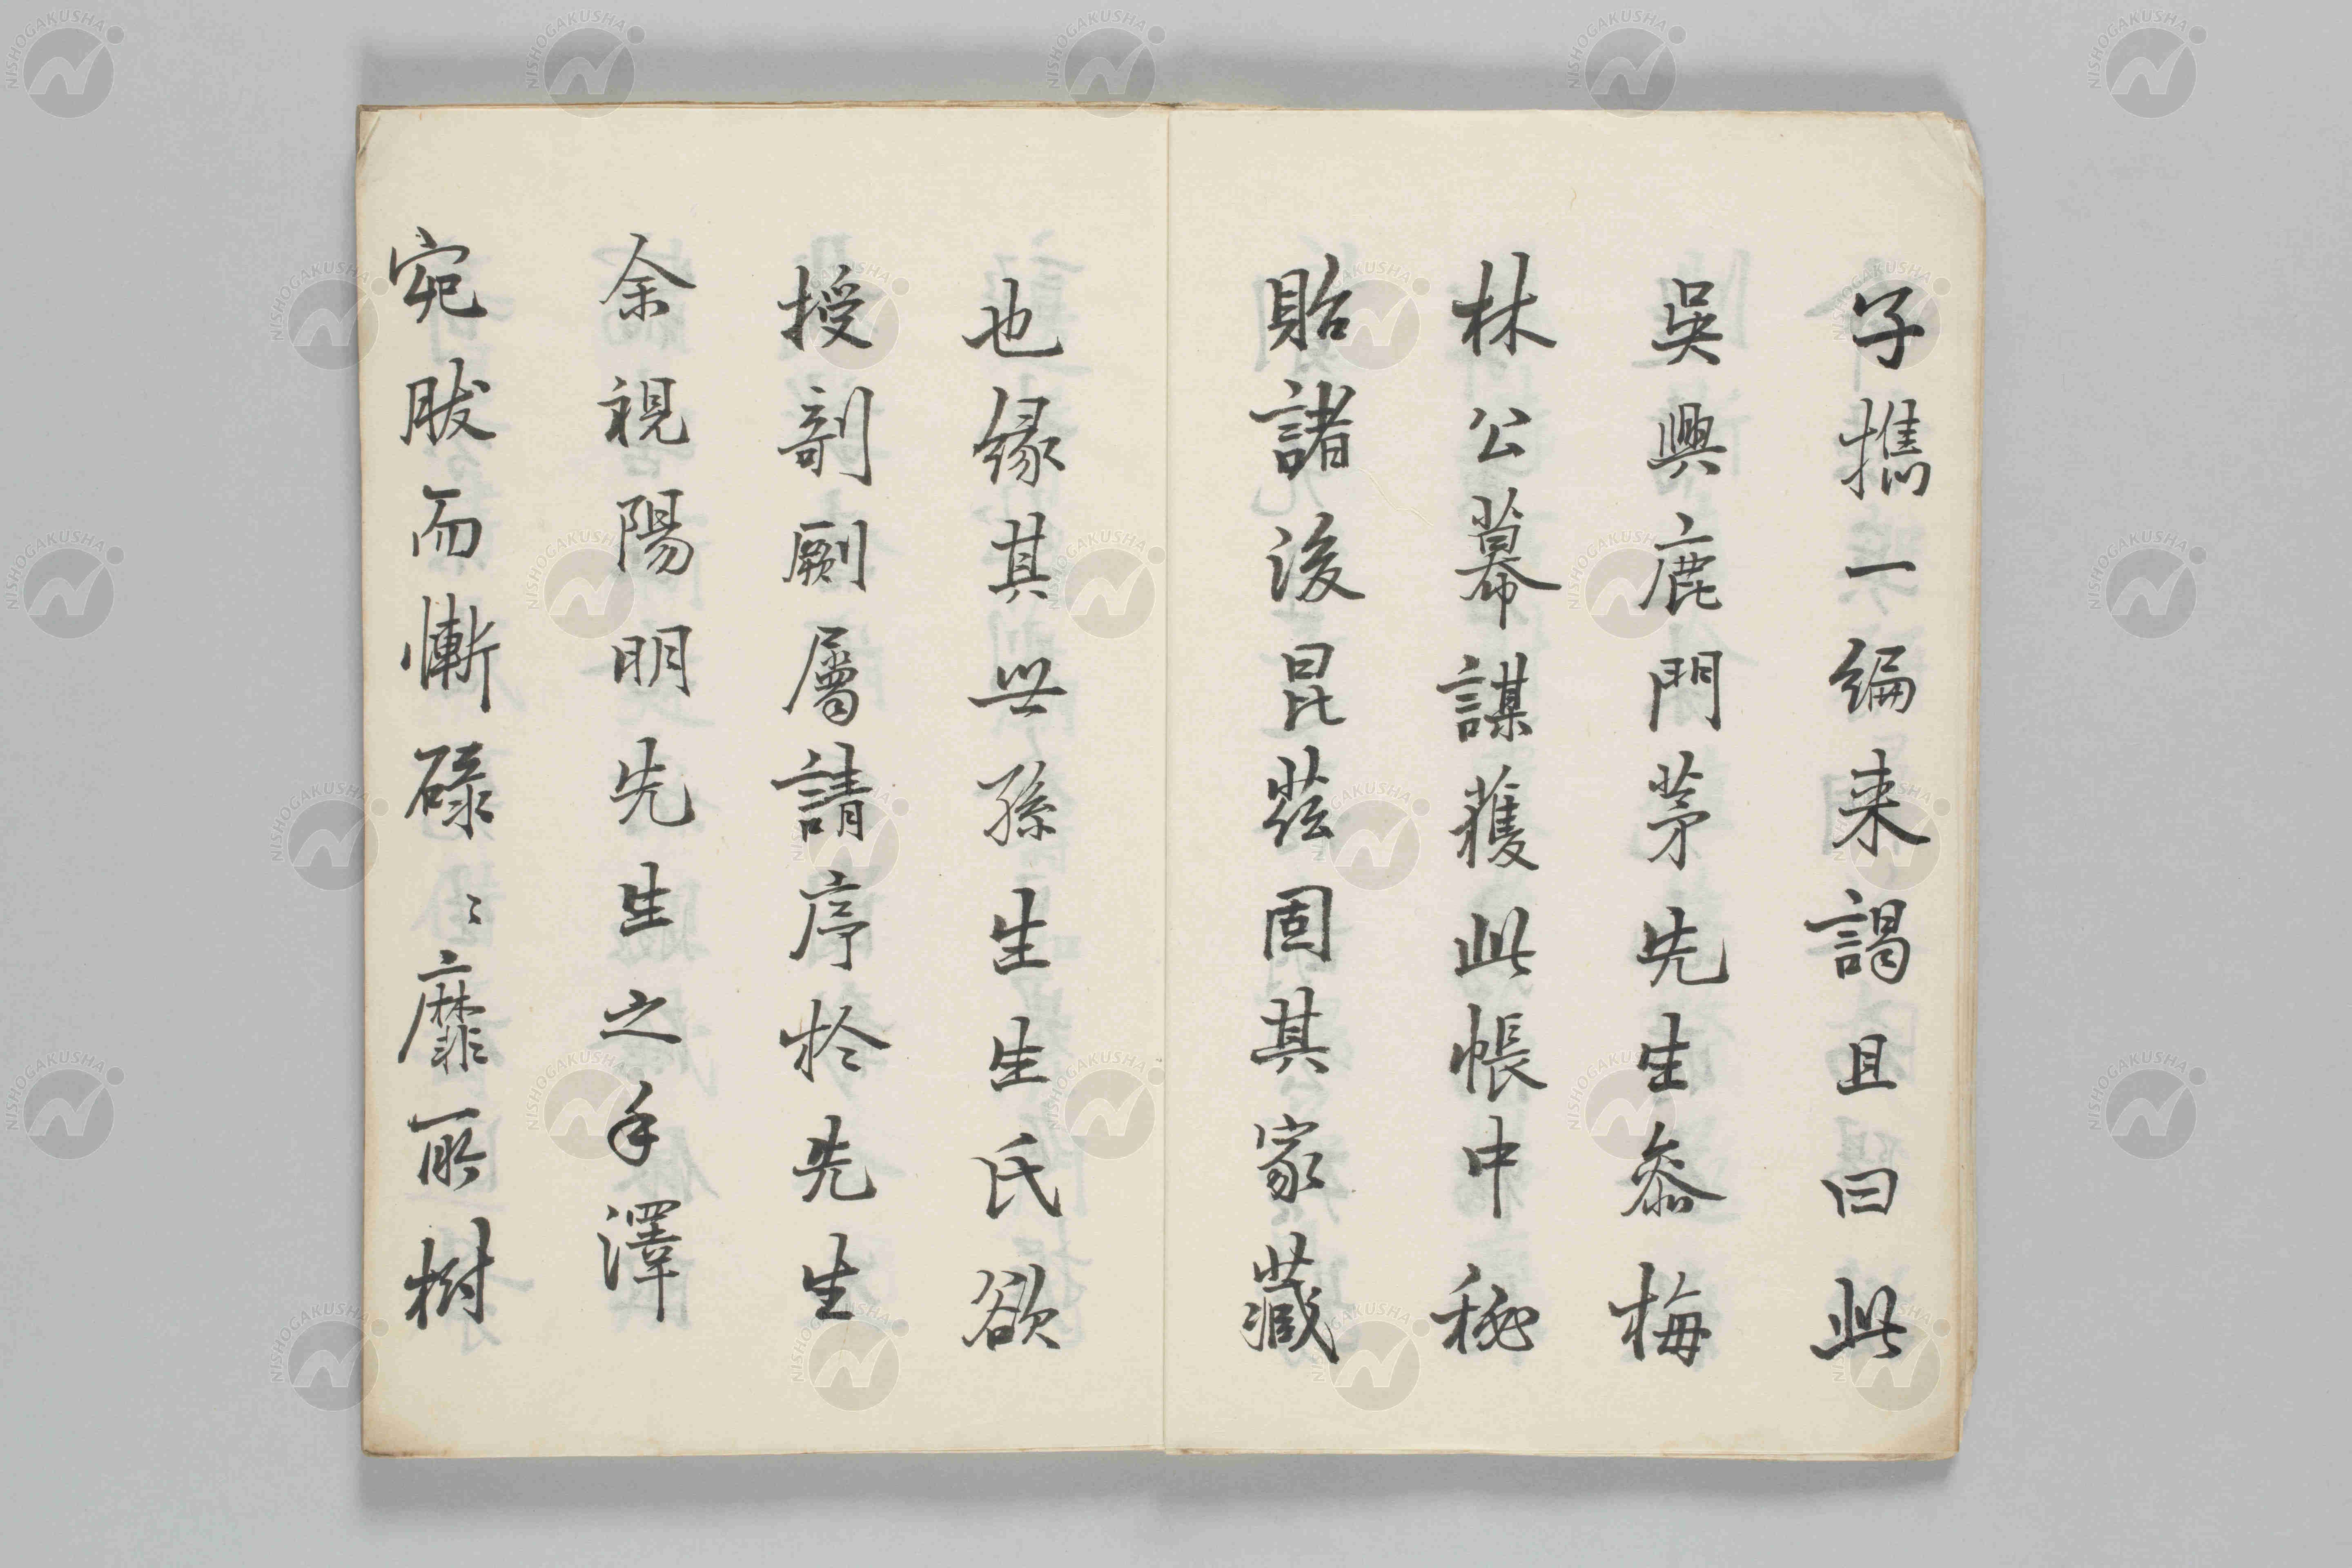 子攜一編来謁且曰此
吳興鹿門茅先生叅梅
林公幕謀獲此帳中秘
貽諸後昆茲固其家藏
也緣其世孫生生氏欲
授剞劂屬請序扵先生
余視陽明先生之手澤
宛肰而慚碌〻靡所樹
NISHOGAKUSHA